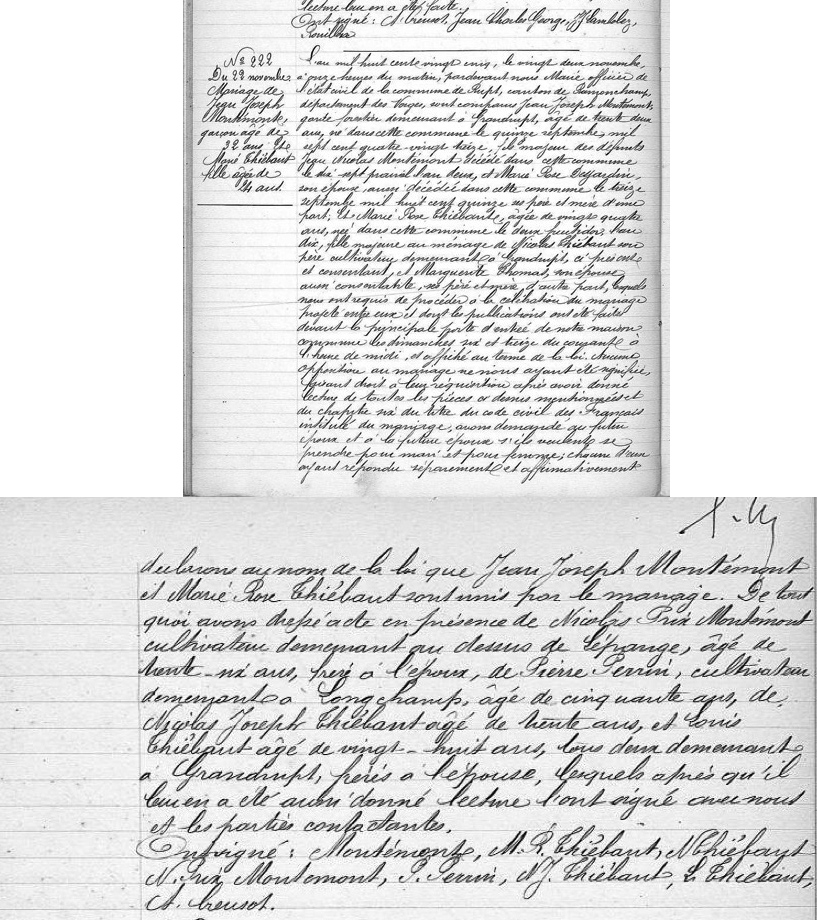 lecture leur en a été faite.
Ont signé : A. Creusot, Jean Charles George, J.J. Lamboley,
Rouillon
N° 222
Du 22 novembre
Mariage de
Jean Joseph
Montémont,
garçon âgé de
32 ans et
Marie Thiébaut
fille âgée de
24 ans.
L'an mil huit cent vingt cinq, le vingt deux novembre,
à onze heures du matin, pardevant nous Maire officier de
l'état civil de la commune de Rupt, canton de Ramonchamp,
département des Vosges, sont comparus Jean Joseph Montémont,
garde forestier demeurant à Grandrupt, âgé de trente deux
ans, né dans cette commune le quinze septembre mil
sept cent quatre vingt treize, fils majeur des défunts
Jean Nicolas Montémont décédé dans cette commune
le dix sept prairial l'an deux, et Marie Rose Desjardin,
son épouse, aussi décédée dans cette commune le treize
septembre mil huit cent quinze ses père et mère d'une
part; Et Marie Rose Thiébaut, âgée de vingt quatre
ans, née dans cette commune le deux fructidor l'an
dix, fille majeure au ménage de Nicolas Thiébaut son
père cultivateur demeurant à Grandrupt, ci présent
et consentant, et Marguerite Thomas, son épouse
aussi consentante, ses père et mère, d'autre part, lesquels
nous ont requis de procéder à la célébration du mariage
projeté entre eux et dont les publications ont été faites
devant la principale porte d'entrée de notre maison
commune les dimanches six et treize du courant à
l'heure de midi, et affiché au terme de la loi. Aucune
opposition au mariage ne nous ayant été signifiée,
faisant droit à leur réquisition après avoir donné
lecture de toutes les pièces ci dessus mentionnées et
du chapitre six du titre du code civil des Français
intitulé du mariage, avons demandé au futur
époux et à la future épouse s'ils veulent se
prendre pour mari et pour femme; chacun d'eux
ayant répondu séparément et affirmativement
déclarons au nom de la loi que Jean Joseph Montémont
et Marie Rose Thiébaut sont unis par le mariage. De tout
quoi avons dressé acte en présence de Nicolas Prix Montémont
cultivateur demeurant au dessus de Lépange, âgé de
trente-six ans, frère à l'époux, de Pierre Perrin, cultivateur
demeurant à Longchamp, âgé de cinquante ans, de
Nicolas Joseph Thiébaut âgé de trente ans, et Louis
Thiébaut âgé de vingt-huit ans, tous deux demeurant
à Grandrupt, frères à l'épouse, lesquels après qu'il
leur en a été aussi donné lecture l'ont signé avec nous
et les parties contractantes.
Ont signé : Montémont, M. R. Thiébaut, N Thiébaut
N. Prix Montémont, P. Perrin, N J. Thiébaut, L. Thiébaut,
A. Creusot.